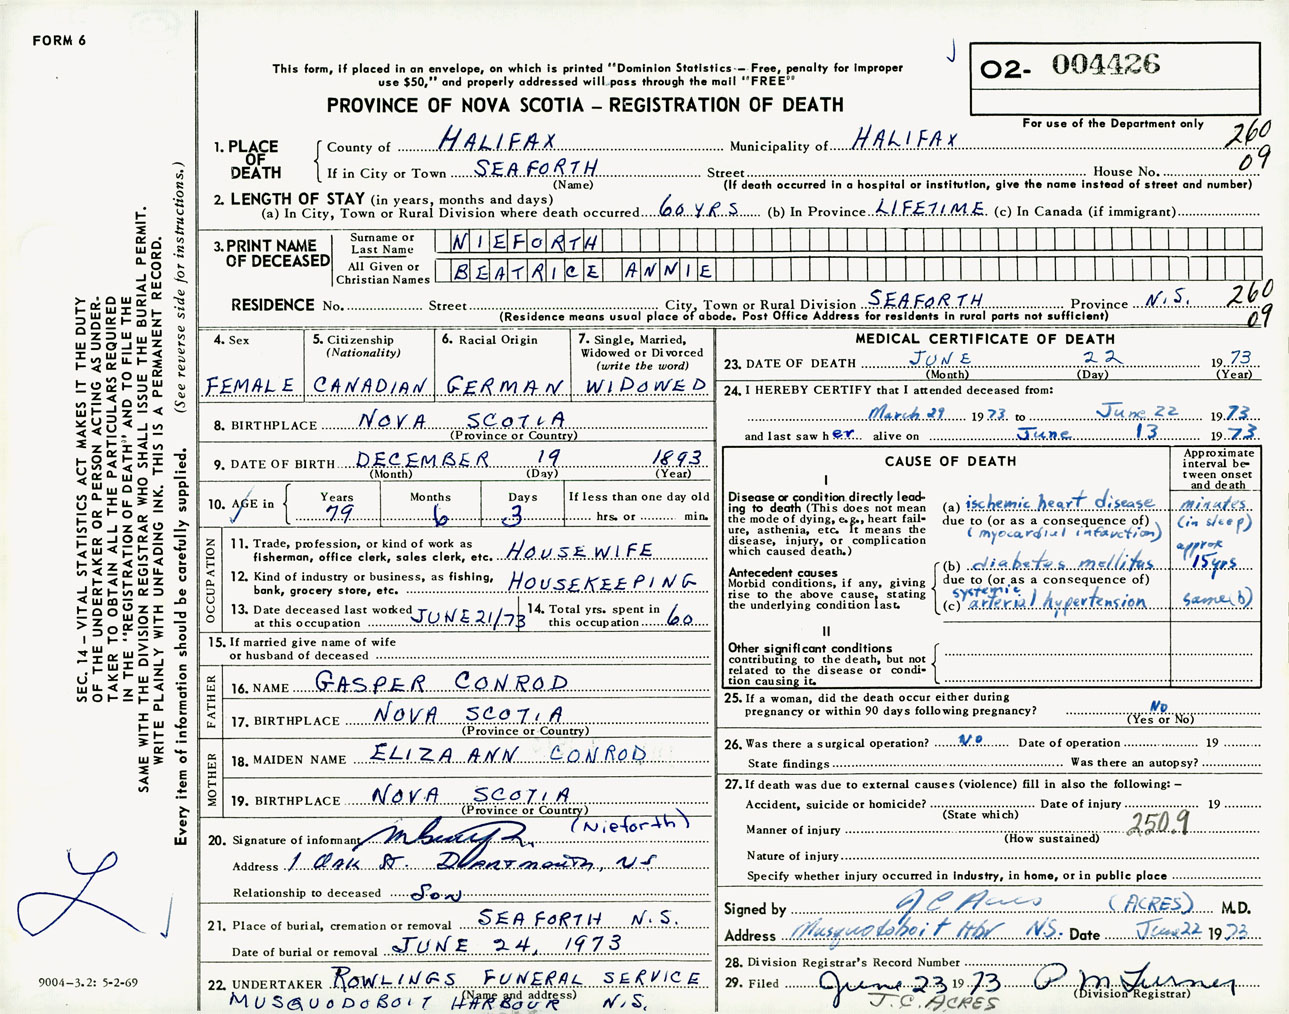 FORM 6
This form, if placed in an envelope, on which is printed "Dominion Statistics — Free, penalty for improper
use $50," and properly addressed will pass through the mail "FREE"
PROVINCE OF NOVA SCOTIA – REGISTRATION OF DEATH
O2- 004426
For use of the Department only
260
09
1. PLACE OF DEATH
County of HALIFAX Municipality of HALIFAX
If in City or Town SEAFORTH Street House No.
(Name) (If death occurred in a hospital or institution, give the name instead of street and number)
2. LENGTH OF STAY (in years, months and days)
(a) In City, Town or Rural Division where death occurred 60 YRS (b) In Province LIFETIME (c) In Canada (if immigrant)
3. PRINT NAME OF DECEASED
Surname or Last Name NIEFORTH
All Given or Christian Names BEATRICE ANNIE
RESIDENCE No. Street City, Town or Rural Division SEAFORTH Province N.S. 260
(Residence means usual place of abode. Post Office Address for residents in rural parts not sufficient) 09
4. Sex FEMALE
5. Citizenship (Nationality) CANADIAN
6. Racial Origin GERMAN
7. Single, Married, Widowed or Divorced (write the word) WIDOWED
8. BIRTHPLACE NOVA SCOTIA
(Province or Country)
9. DATE OF BIRTH DECEMBER 19 1893
(Month) (Day) (Year)
10. AGE in Years 79 Months 6 Days 3 If less than one day old hrs. or min.
OCCUPATION
11. Trade, profession, or kind of work as
fisherman, office clerk, sales clerk, etc. HOUSEWIFE
12. Kind of industry or business, as fishing,
bank, grocery store, etc. HOUSEKEEPING
13. Date deceased last worked
at this occupation JUNE 21/73
14. Total yrs. spent in
this occupation 60
15. If married give name of wife
or husband of deceased
FATHER
16. NAME GASPER CONROD
17. BIRTHPLACE NOVA SCOTIA
(Province or Country)
MOTHER
18. MAIDEN NAME ELIZA ANN CONROD
19. BIRTHPLACE NOVA SCOTIA
(Province or Country)
20. Signature of informant (Nieforth)
Address 1 Oak St. Dartmouth, N.S.
Relationship to deceased Son
21. Place of burial, cremation or removal SEAFORTH N.S.
Date of burial or removal JUNE 24, 1973
22. UNDERTAKER ROWLINGS FUNERAL SERVICE
(Name and address)
MUSQUODOBOIT HARBOUR N.S.
MEDICAL CERTIFICATE OF DEATH
23. DATE OF DEATH JUNE 22 1973
(Month) (Day) (Year)
24. I HEREBY CERTIFY that I attended deceased from:
March 29 1973 to June 22 1973
and last saw her alive on June 13 1973
CAUSE OF DEATH
Approximate interval between onset and death
I
Disease or condition directly leading to death (This does not mean
the mode of dying, e.g., heart failure, asthenia, etc. It means the
disease, injury, or complication
which caused death.)
(a) ischemic heart disease minutes
due to (or as a consequence of) (in sleep)
(myocardial infarction)
Antecedent causes
Morbid conditions, if any, giving
rise to the above cause, stating
the underlying condition last.
(b) diabetes mellitus approx 15 yrs
due to (or as a consequence of)
systemic
(c) arterial hypertension same b)
II
Other significant conditions
contributing to the death, but not
related to the disease or condition causing it.
25. If a woman, did the death occur either during
pregnancy or within 90 days following pregnancy? No
(Yes or No)
26. Was there a surgical operation? No Date of operation 19
State findings Was there an autopsy?
27. If death was due to external causes (violence) fill in also the following: –
Accident, suicide or homicide? Date of injury 19
(State which)
Manner of injury 250.9
(How sustained)
Nature of injury
Specify whether injury occurred in industry, in home, or in public place
Signed by J C Acres (ACRES) M.D.
Address Musquodoboit Hbr NS. Date June 22 1973
28. Division Registrar's Record Number
29. Filed June 23 1973 P M Turner
(Division Registrar)
J.C. ACRES
SEC. 14 – VITAL STATISTICS ACT MAKES IT THE DUTY
OF THE UNDERTAKER OR PERSON ACTING AS UNDER-
TAKER TO OBTAIN ALL THE PARTICULARS REQUIRED
IN THE "REGISTRATION OF DEATH" AND TO FILE THE
SAME WITH THE DIVISION REGISTRAR WHO SHALL ISSUE THE BURIAL PERMIT.
WRITE PLAINLY WITH UNFADING INK. THIS IS A PERMANENT RECORD.
Every item of information should be carefully supplied. (See reverse side for instructions.)
9004–3.2: 5-2-69